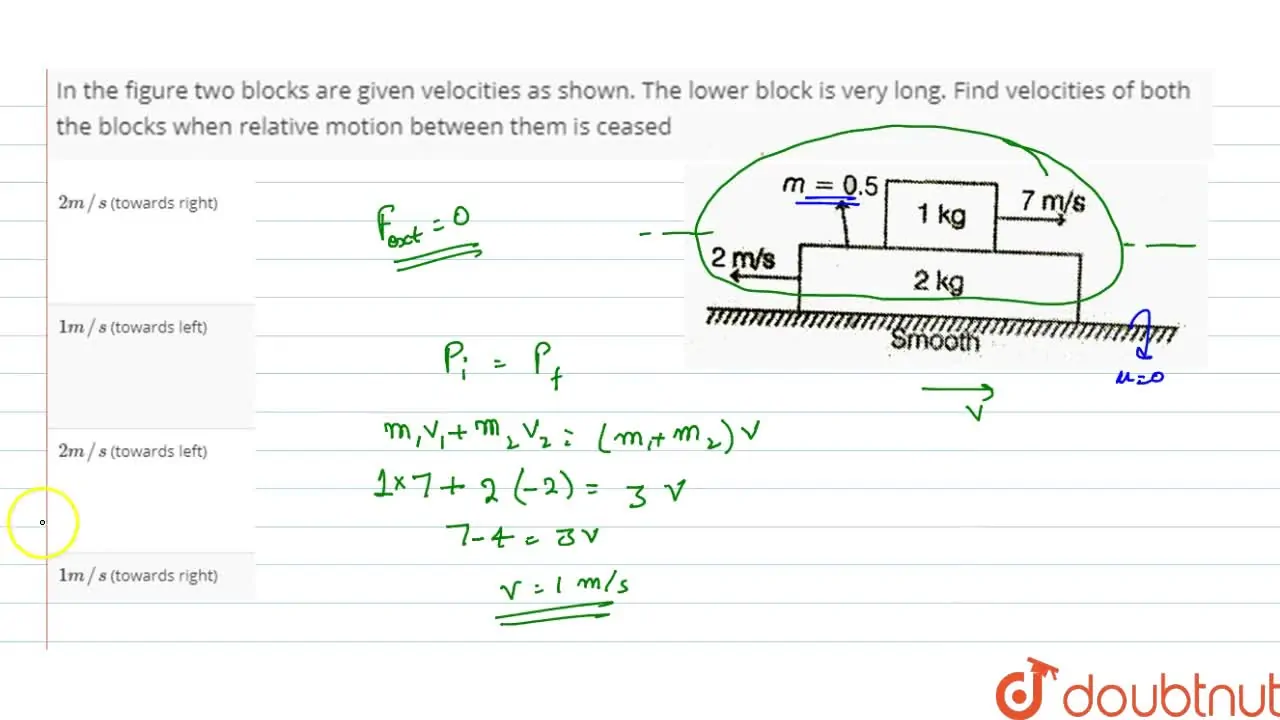 In the figure two blocks are given velocities as shown. The lower block is very long. Find velocities of both
the blocks when relative motion between them is ceased
2m/s (towards right)
1m/s (towards left)
2m/s (towards left)
1m/s (towards right)
F_ext = 0
P_i = P_f
m_1 v_1 + m_2 v_2 = (m_1 + m_2) v
1 × 7 + 2 (-2) = 3 v
7 - 4 = 3v
v = 1 m/s
m = 0.5
1 kg
7 m/s
2 m/s
2 kg
Smooth
μ=0
v
doubtnut